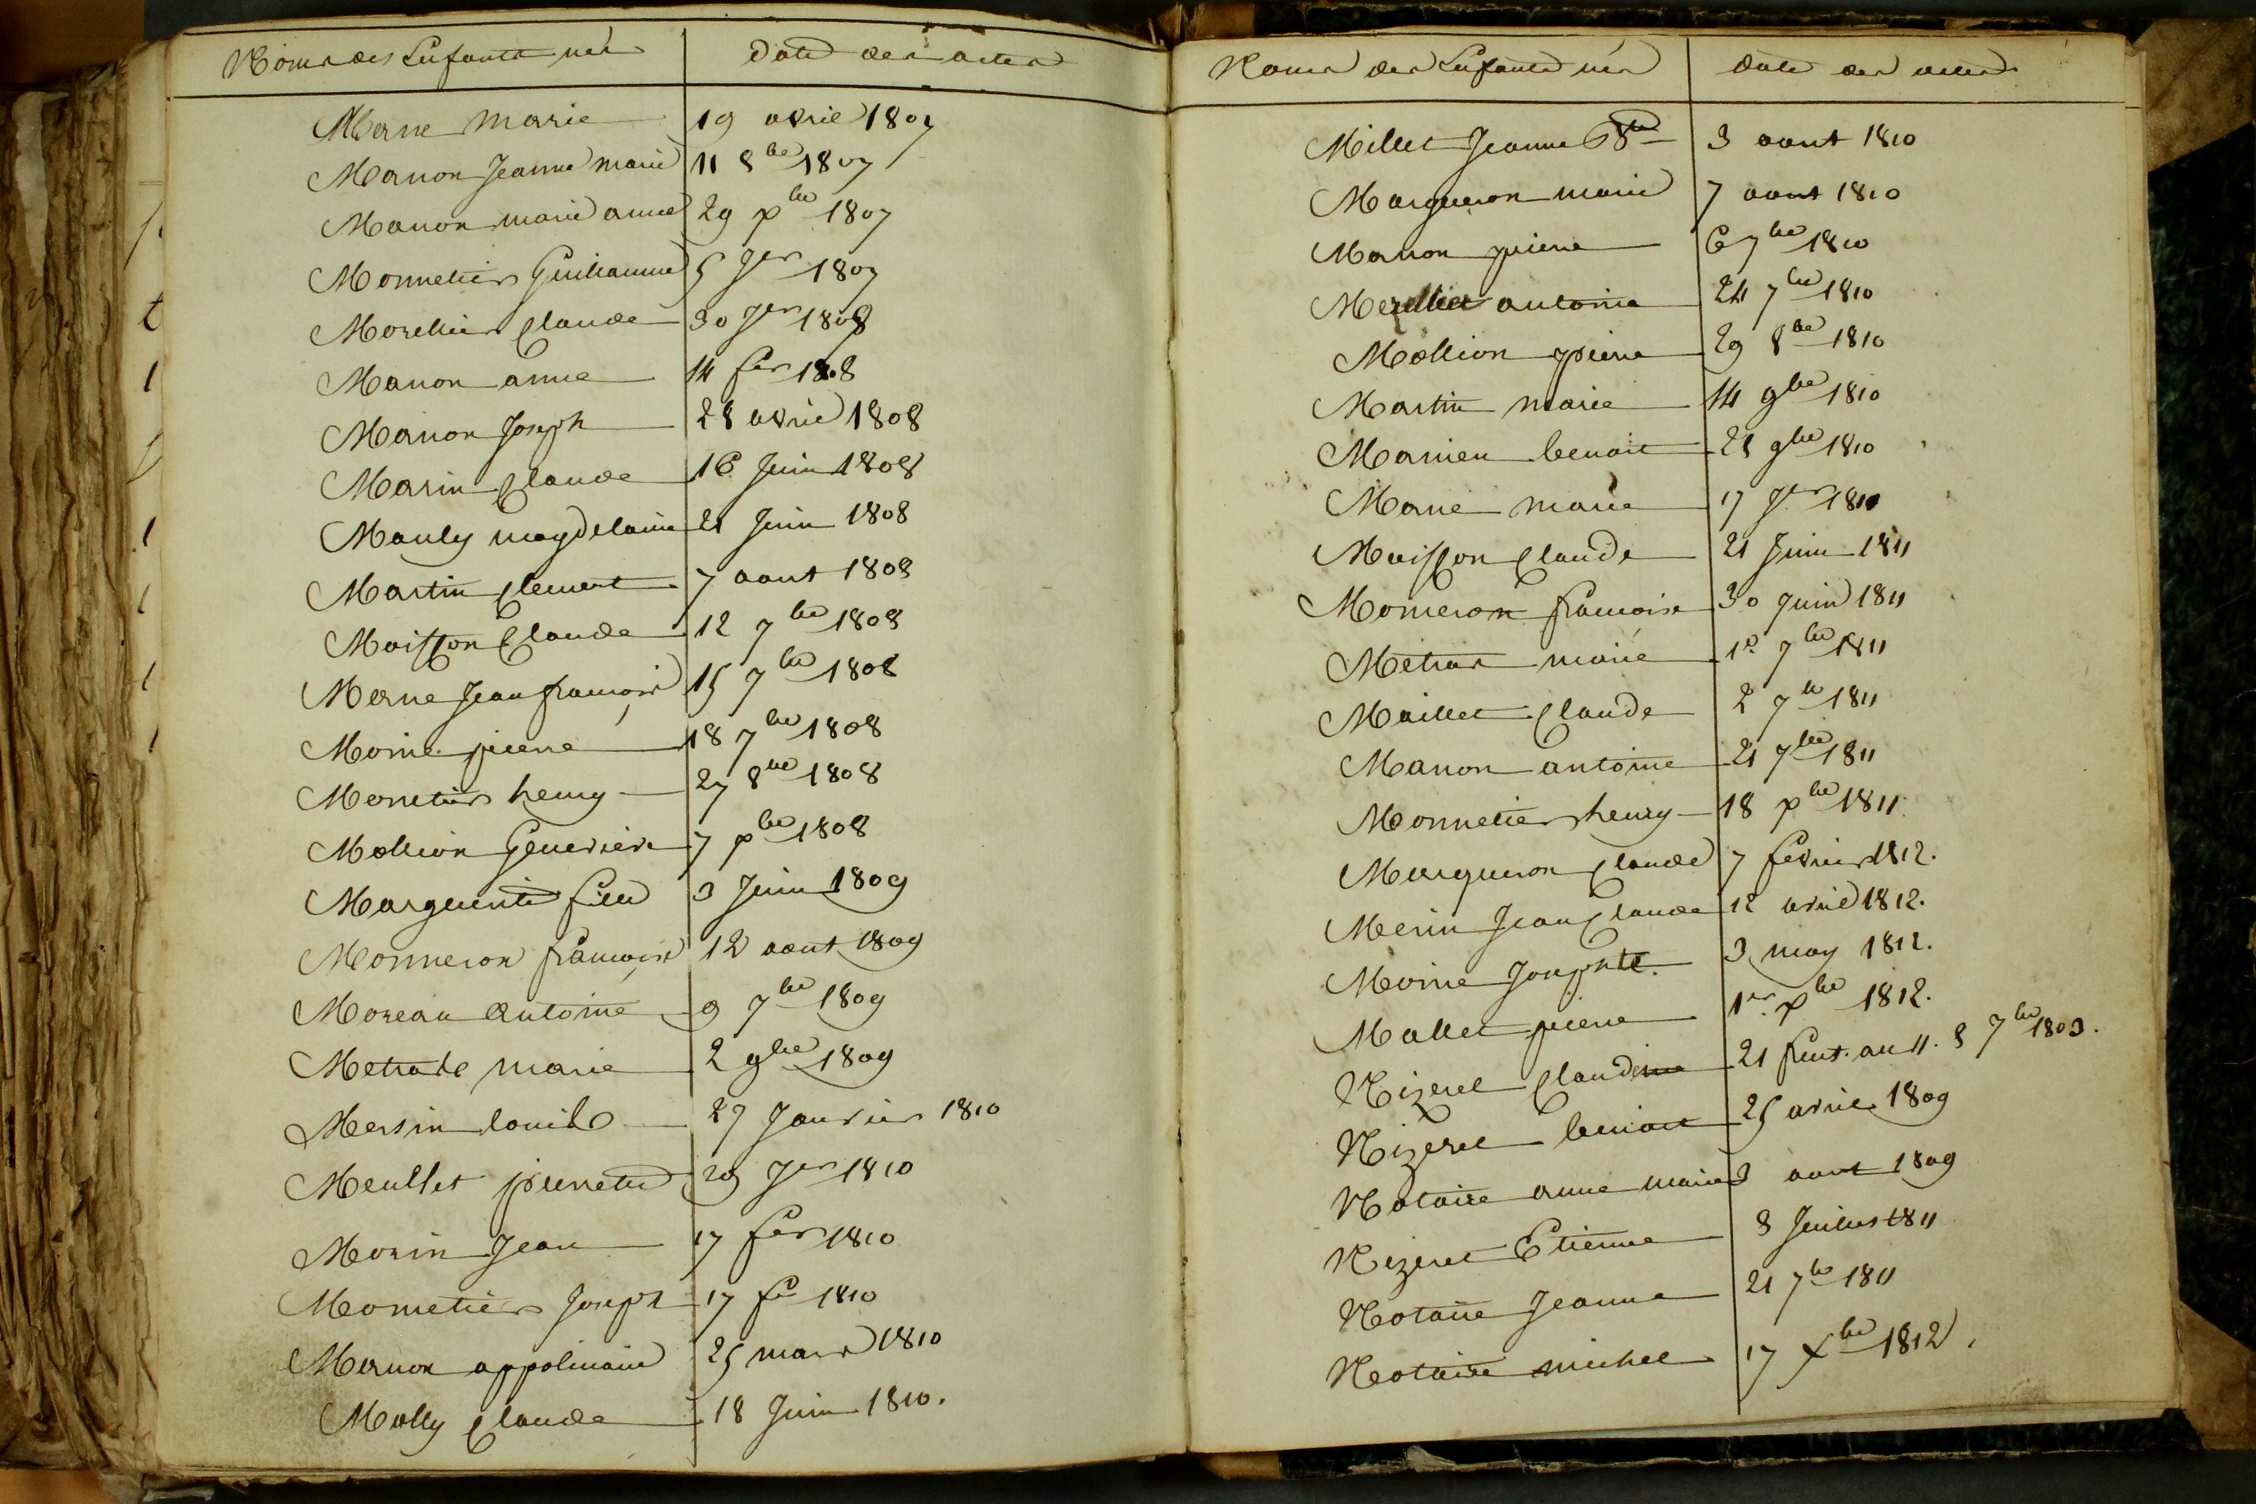 Noms des Enfants nés
date des actes
Merne marie 19 avril 1807
Manon Jeanne marie 11 8bre 1807
Manon marie anne 29 xbre 1807
Monnetier Guillaume 5 Jer 1807
Morellier Claude 30 Jer 1808
Manon anne 14 fer 1808
Manon Joseph 28 avril 1808
Marin Claude 16 Juin 1808
Manly magdelaine 21 Juin 1808
Martin Clement 7 aout 1808
Moisson Claude 12 7bre 1808
Merne Jean françois 15 7bre 1808
Moine pierre 18 7bre 1808
Monetier henry 27 8bre 1808
Mollion Genevieve 7 xbre 1808
Marguerite 3 Juin 1809
Monneron françoise 12 aout 1809
Moreau Antoine 9 7bre 1809
Metra marie 2 9bre 1809
Mersin louis 27 Janvier 1810
Meullet pierrette 29 Jer 1810
Morin Jean 17 fer 1810
Mometier Joseph 17 fer 1810
Manon appolinaire 25 mars 1810
Molly Claude 18 Juin 1810.
Noms des Enfants nés
date des actes
Millet Jeanne 3 aout 1810
Margueron marie 7 aout 1810
Manon pierre 6 7bre 1810
antoine 24 7bre 1810
Mollion pierre 29 8bre 1810
Martin marie 14 9bre 1810
Marnien benoit 28 9bre 1810
Marie marie 17 Jer 1811
Moisson Claude 21 Juin 1811
Momeron francoise 30 Juin 1811
Metras marie 1er 7bre 1811
Maillet Claude 2 7bre 1811
Manon antoine 21 7bre 1811
Monnetier henry 18 xbre 1811
Margueron Claude 7 fevrier 1812.
Merin Jean Claude 12 avril 1812.
Moine Josephte. 3 may 1812.
Mallet pierre 1er xbre 1812.
Nizeret Claudine 21 fruct. an 11. 8 7bre 1803.
Nizeret benoit 25 avril 1809
Notaire anne marie 3 aout 1809
Nizeret Etienne 8 Juillet 1811
Notaire Jeanne 21 7bre 1811
Notaire michel 17 xbre 1812.